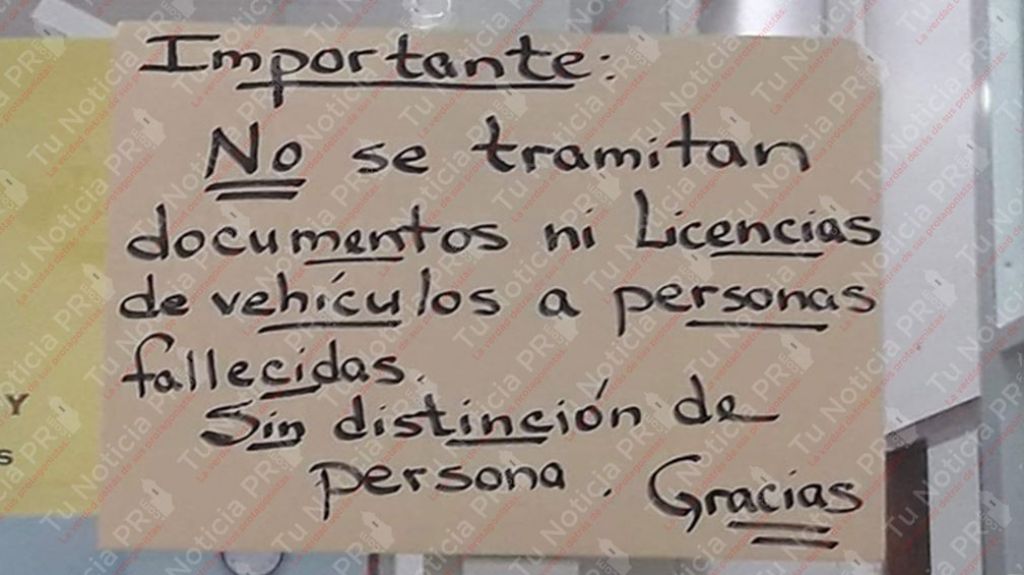 Importante:
No se tramitan
documentos ni Licencias
de vehículos a personas
fallecidas.
Sin distinción de
persona. Gracias
Y
S
Tu Noticia PR
La verdad detrás de sus protagonistas.